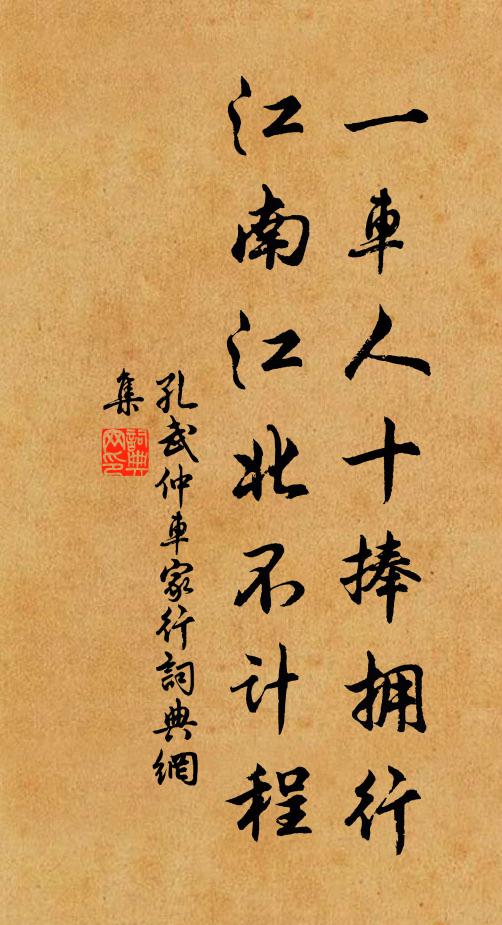 一車人十捧拥行
江南江北不计程
孔武仲車家行詞典網
集
詞典
网印